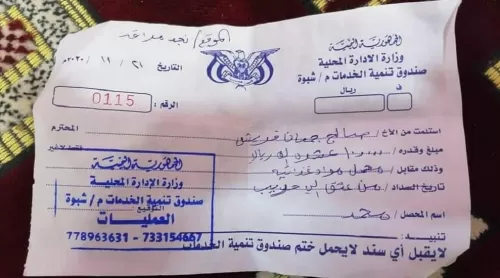 الموقع/ نجد مداعة
الجمهورية اليمنية
وزارة الادارة المحلية
صندوق تنمية الخدمات م/ شبوة
التاريخ ٢١ / ١١ / ٢٠٢٠م
ف ريال
الرقم : 0115
استلمت من الأخ / صالح جمعان المحترم
مبلغ وقدره / ريال فقط لاغير
وذلك مقابل / محمل مواد غذائية
تاريخ السداد / من عتق الى
اسم المحصل / محمد التوقيع
تنبيه :
لايقبل أي سند لايحمل ختم صندوق تنمية الخدمات
الجمهورية اليمنية
وزارة الإدارة المحلية
صندوق تنمية الخدمات م/ شبوة
العمليات
778963631 - 733154667